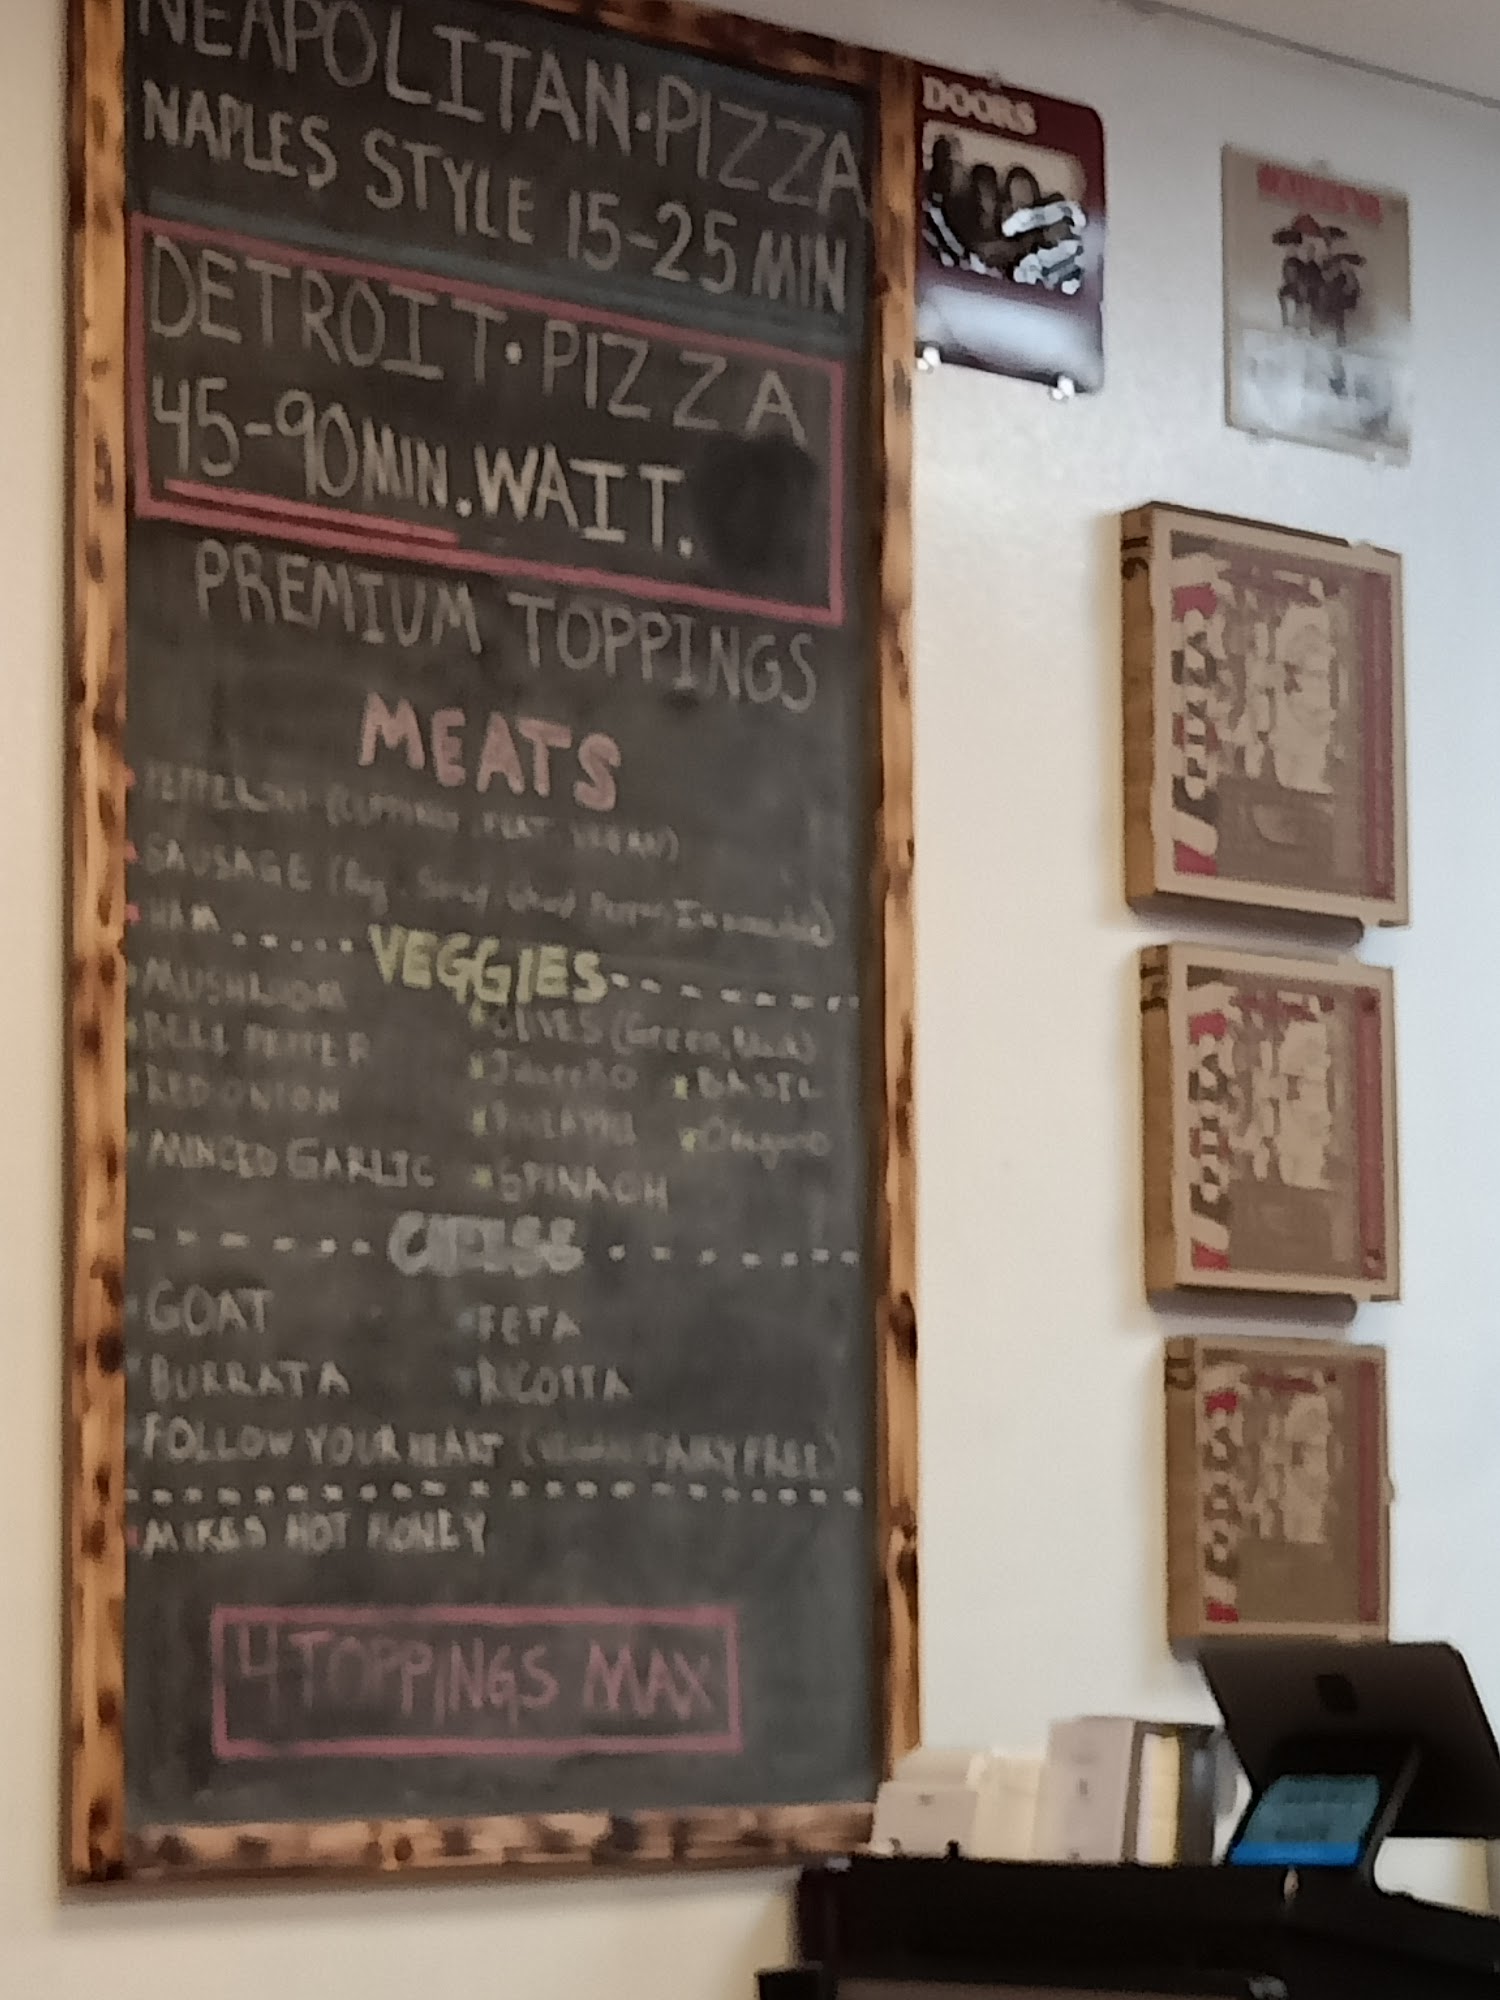 NEAPOLITAN·PIZZA
NAPLES STYLE 15-25 MIN
DETROIT·PIZZA
45-90 MIN. WAIT.
PREMIUM TOPPINGS
MEATS
PEPPERONI
SAUSAGE
HAM
VEGGIES
MUSHROOM
OLIVES (Green,
BELL PEPPER
BASIL
RED ONION
MINCED GARLIC
SPINACH
GOAT
FETA
BURRATA
RICOTTA
FOLLOW YOUR HEART DAIRY FREE)
MIKES HOT HONEY
4 TOPPINGS MAX
DOORS
PIZZA
PIZZA
PIZZA
12